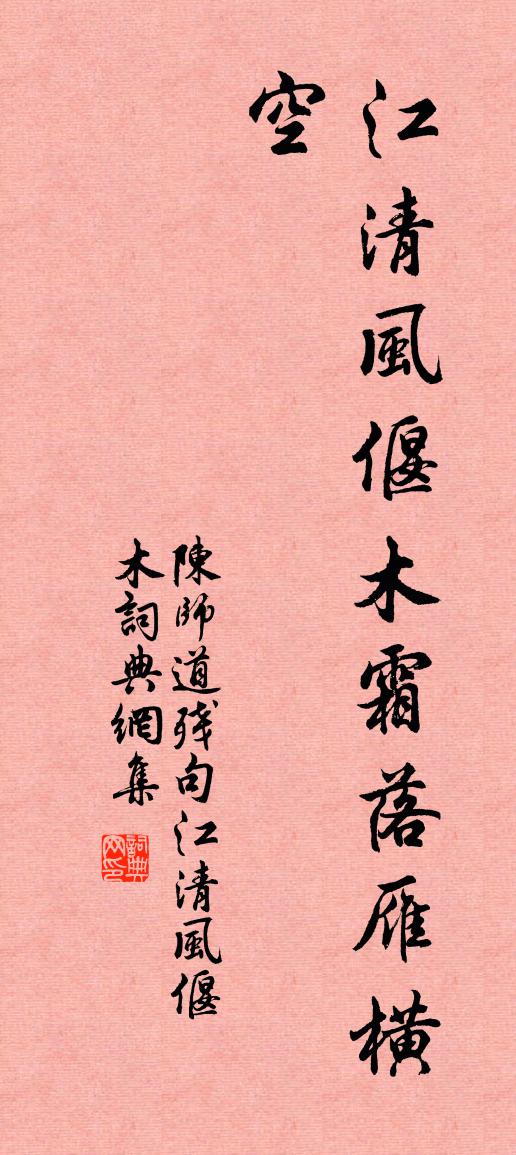 江清風偃木霜落雁橫
空
陳師道殘句江清風偃
木詞典網集
詞典
网印